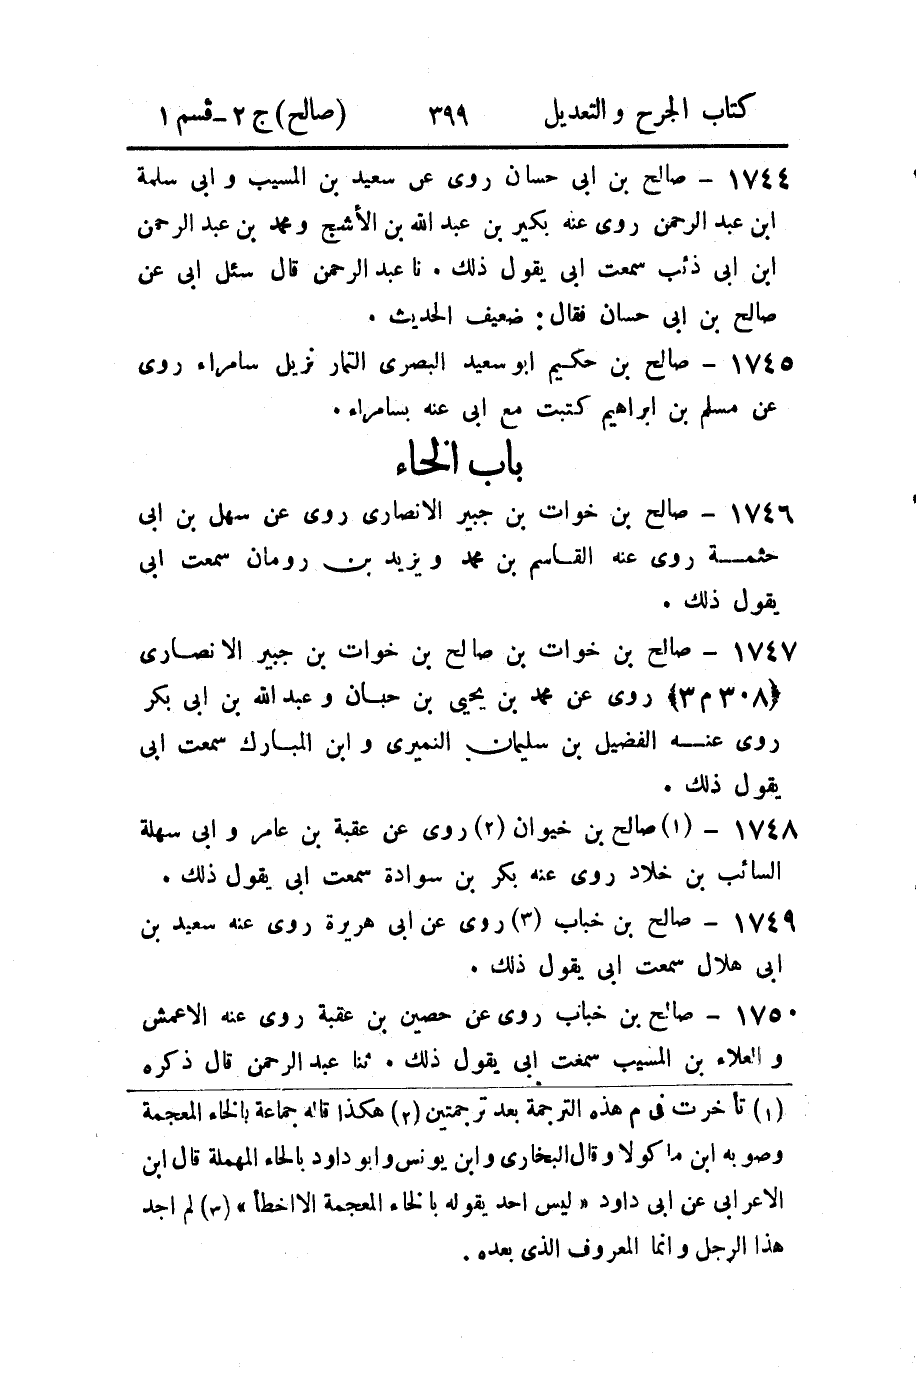 كتاب الجرح والتعديل ٣٩٩ (صالح) ج ٢ - قسم ١
١٧٤٤ - صالح بن ابى حسان روى عن سعيد بن المسيب و ابى سلمة
ابن عبد الرحمن روى عنه بكير بن عبد الله بن الأشج ومحمد بن عبد الرحمن
ابن ابى ذئب سمعت ابى يقول ذلك . نا عبد الرحمن قال سئل ابى عن
صالح بن ابى حسان فقال : ضعيف الحديث .
١٧٤٥ - صالح بن حكيم ابو سعيد البصرى التمار نزيل سامراء روى
عن مسلم بن ابراهيم كتبت مع ابى عنه بسامراء .
باب الخاء
١٧٤٦ - صالح بن خوات بن جبير الانصارى روى عن سهل بن ابى
حثمة روى عنه القاسم بن محمد ويزيد بن رومان سمعت ابى
يقول ذلك .
١٧٤٧ - صالح بن خوات بن صالح بن خوات بن جبير الانصارى
﴿٣٠٨ م ٣﴾ روى عن محمد بن يحيى بن حبان و عبد الله بن ابى بكر
روى عنه الفضيل بن سليمان النميرى و ابن المبارك سمعت ابى
يقول ذلك .
١٧٤٨ - (١) صالح بن خيوان (٢) روى عن عقبة بن عامر و ابى سهلة
السائب بن خلاد روى عنه بكر بن سوادة سمعت ابى يقول ذلك .
١٧٤٩ - صالح بن خباب (٣) روى عن ابى هريرة روى عنه سعيد بن
ابى هلال سمعت ابى يقول ذلك .
١٧٥٠ - صالح بن خباب روى عن حصين بن عقبة روى عنه الاعمش
و العلاء بن المسيب سمعت ابى يقول ذلك . ثنا عبد الرحمن قال ذكره
(١) تأخرت فى م هذه الترجمة بعد ترجمتين (٢) هكذا قاله جماعة بالخاء المعجمة
وصوبه ابن ماكولا وقال البخارى وابن يونس وابو داود بالحاء المهملة قال ابن
الاعرابى عن ابى داود « ليس احد يقوله بالخاء المعجمة الا اخطأ » (٣) لم اجد
هذا الرجل و انما المعروف الذى بعده .